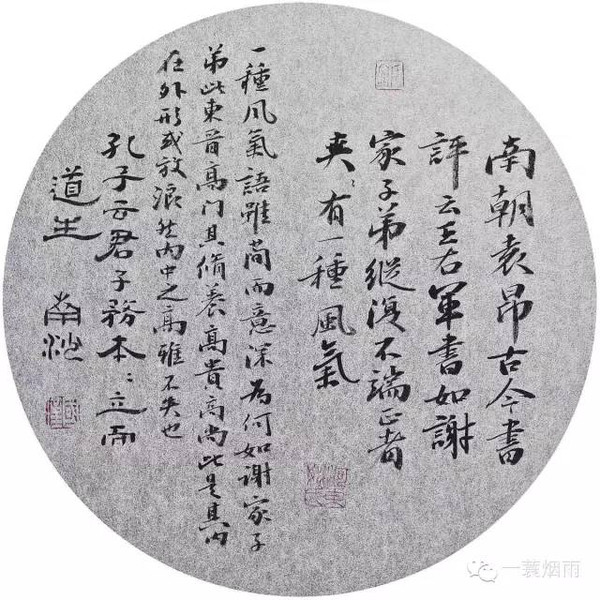 南朝袁昂古今書
評云王右軍書如謝
家子弟縱復不端正者
爽〻有一種風氣
一種風氣語雖簡而意深為何如謝家子
弟此東晉高门其脩養高貴高尚此是其内
在外形或放浪然内中之高雅不失也
孔子云君子務本〻立而
道生
一蓑烟雨